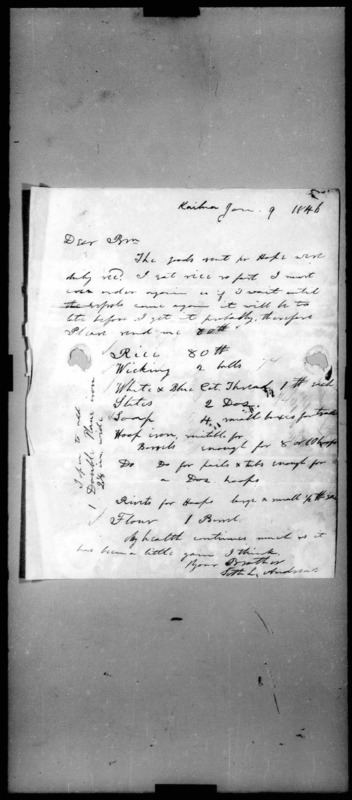 Kailua Jan. 9 1846
Dear Bro
The goods sent per Hope were
duly recd. I eat rice so fast I must
even order again as if I wait until
the come again it will be too
late before I get it probably, therefore
Please send me 80 lb
Rice 80 lb
Wicking 2 balls
White & Blue Cot. Thread 1 lb each
Slates 2 Doz.
Soap 4 small boxes for trade
Hoop iron, suitable for
Barrels enough for 8 or 10 hoops
Do Do for pails & tubs enough for
a Doz hoops
Rivets for Hoops large & small ½ lb
Flour 1 Barrel
My health continues much as it
has been a little gain I think
Your Brother
Seth L. Andrews
to add
1 Double Plane iron
2¼ in. wide